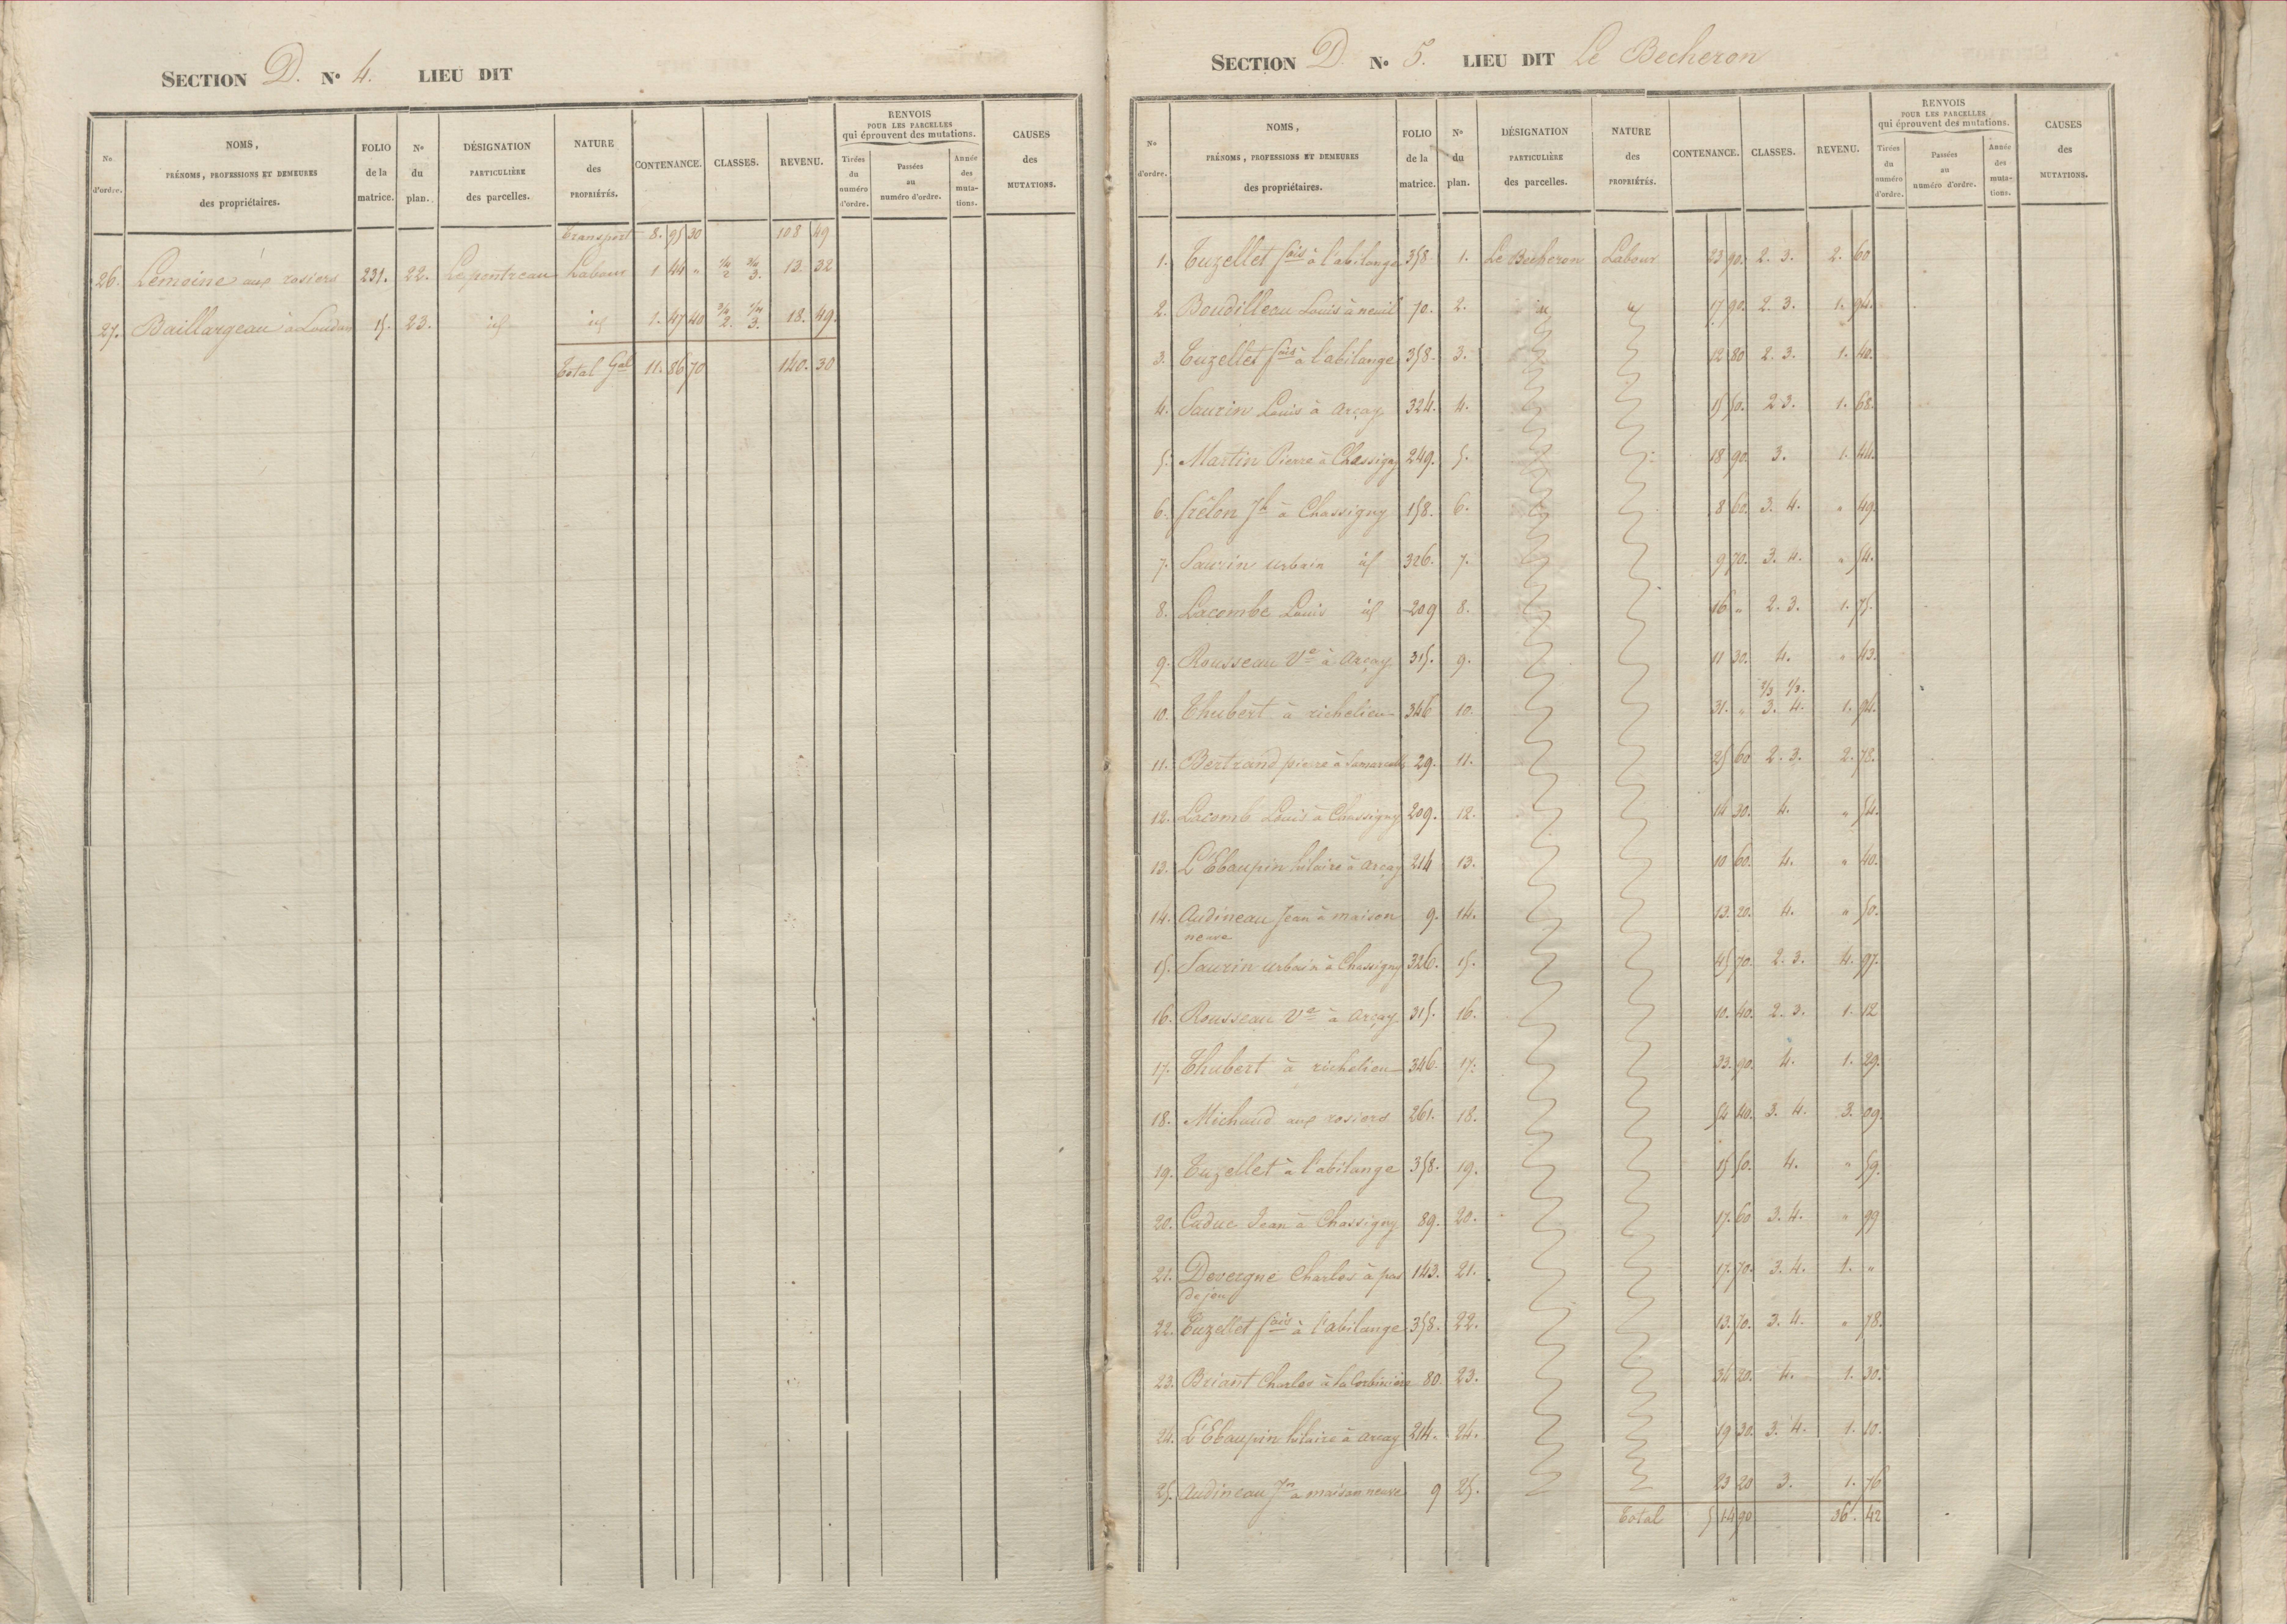 SECTION D. N° 4. LIEU DIT
N° d'ordre. NOMS, PRÉNOMS, PROFESSIONS ET DEMEURES des propriétaires. FOLIO de la matrice. N° du plan. DÉSIGNATION PARTICULIÈRE des parcelles. NATURE des PROPRIÉTÉS. CONTENANCE. CLASSES. REVENU. RENVOIS POUR LES PARCELLES qui éprouvent des mutations. Tirées du numéro d'ordre. Passées au numéro d'ordre. Année des mutations. CAUSES des MUTATIONS.
Transport 8. 95 30 108 49
26. Lemoine aux rosiers 231. 22. Le pontreau Labour 1 44 " 2 3. 13. 32
27. Baillargeau à Loudun 15. 23. id id 1. 47 40 2. 3. 18. 49.
Total Gal 11. 86 70 140. 30
SECTION D. N° 5. LIEU DIT Le Becheron
N° d'ordre. NOMS, PRÉNOMS, PROFESSIONS ET DEMEURES des propriétaires. FOLIO de la matrice. N° du plan. DÉSIGNATION PARTICULIÈRE des parcelles. NATURE des PROPRIÉTÉS. CONTENANCE. CLASSES. REVENU. RENVOIS POUR LES PARCELLES qui éprouvent des mutations. Tirées du numéro d'ordre. Passées au numéro d'ordre. Année des mutations. CAUSES des MUTATIONS.
1. Tuzellet fois à l'abilange 358 1. Le Becheron Labour 23 90. 2. 3. 2. 60
2. Boudilleau Louis à neuil 70. 2. id id 17 90. 2. 3. 1. 94.
3. Tuzellet fois à l'abilange 358. 3. 12 80 2. 3. 1. 40.
4. Saurin Louis à Arçay 324. 4. 15 50. 2 3. 1. 68.
5. Martin Pierre à Chassigny 249. 5. 18 90. 3. 1. 44.
6. frélon Jh à Chassigny 158. 6. 8 60. 3. 4. " 49.
7. Saurin urbain id 326. 7. 9 70. 3. 4. " 54.
8. Lacombe Louis id 209 8. 16 " 2. 3. 1. 75.
9. Rousseau Ve à Arçay 315. 9. 11 30. 4. " 43.
10. Thubert à richelieu 346 10. 31. " 2/3 1/3. 3. 4. 1. 94.
11. Bertrand pierre à 29. 11. 25 60 2. 3. 2. 78.
12. Lacomb Louis à Chassigny 209. 12. 14 30. 4. " 54.
13. L'Ebaupin hilaire à Arçay 214 13. 10 60. 4. " 40.
14. Audineau Jean à maison neuve 9. 14. 13. 20. 4. " 50.
15. Saurin urbain à Chassigny 326. 15. 45 70. 2. 3. 4. 97.
16. Rousseau Ve à Arçay 315. 16. 10. 40. 2. 3. 1. 12
17. Thubert à richelieu 346. 17. 33. 90. 4. 1. 29.
18. Michaud aux rosiers 261. 18. 54 40. 3. 4. 3. 09.
19. Tuzellet à l'abilange 358. 19. 15 50. 4. " 59.
20. Caduc Jean à Chassigny 89. 20. 17. 60 3. 4. " 99
21. Devergne Charles à pas de jeu 143. 21. 17. 70. 3. 4. 1. "
22. Tuzellet fois à l'abilange 358. 22. 13. 70. 3. 4. " 78.
23. Briant Charles à la Corbinière 80. 23. 34 20. 4. 1. 30.
24. L'Ebaupin hilaire à Arçay 214. 24. 19 30. 3. 4. 1. 10.
25. Audineau Jn à maison neuve 9 25. 23 20 3. 1. 76
Total 5 14 90 36. 42